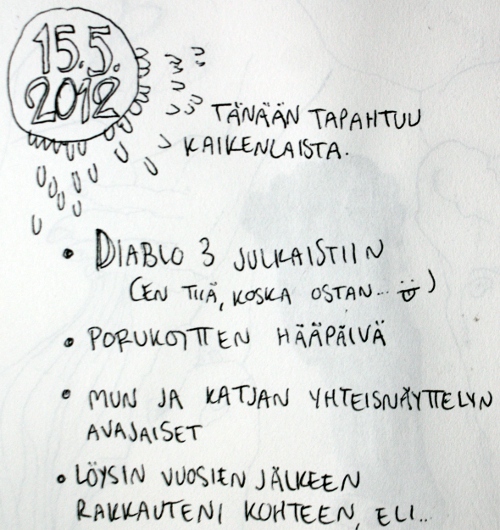 15.5.
2012
TÄNÄÄN TAPAHTUU
KAIKENLAISTA.
• DIABLO 3 JULKAISTIIN
(EN TIIÄ, KOSKA OSTAN... )
• PORUKOITTEN HÄÄPÄIVÄ
• MUN JA KATJAN YHTEISNÄYTTELYN
AVAJAISET
• LÖYSIN VUOSIEN JÄLKEEN
RAKKAUTENI KOHTEEN, ELI...